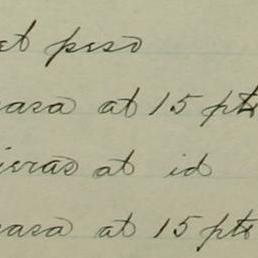 et peso
vara at 15 pts
ieras at id
vara at 15 pts